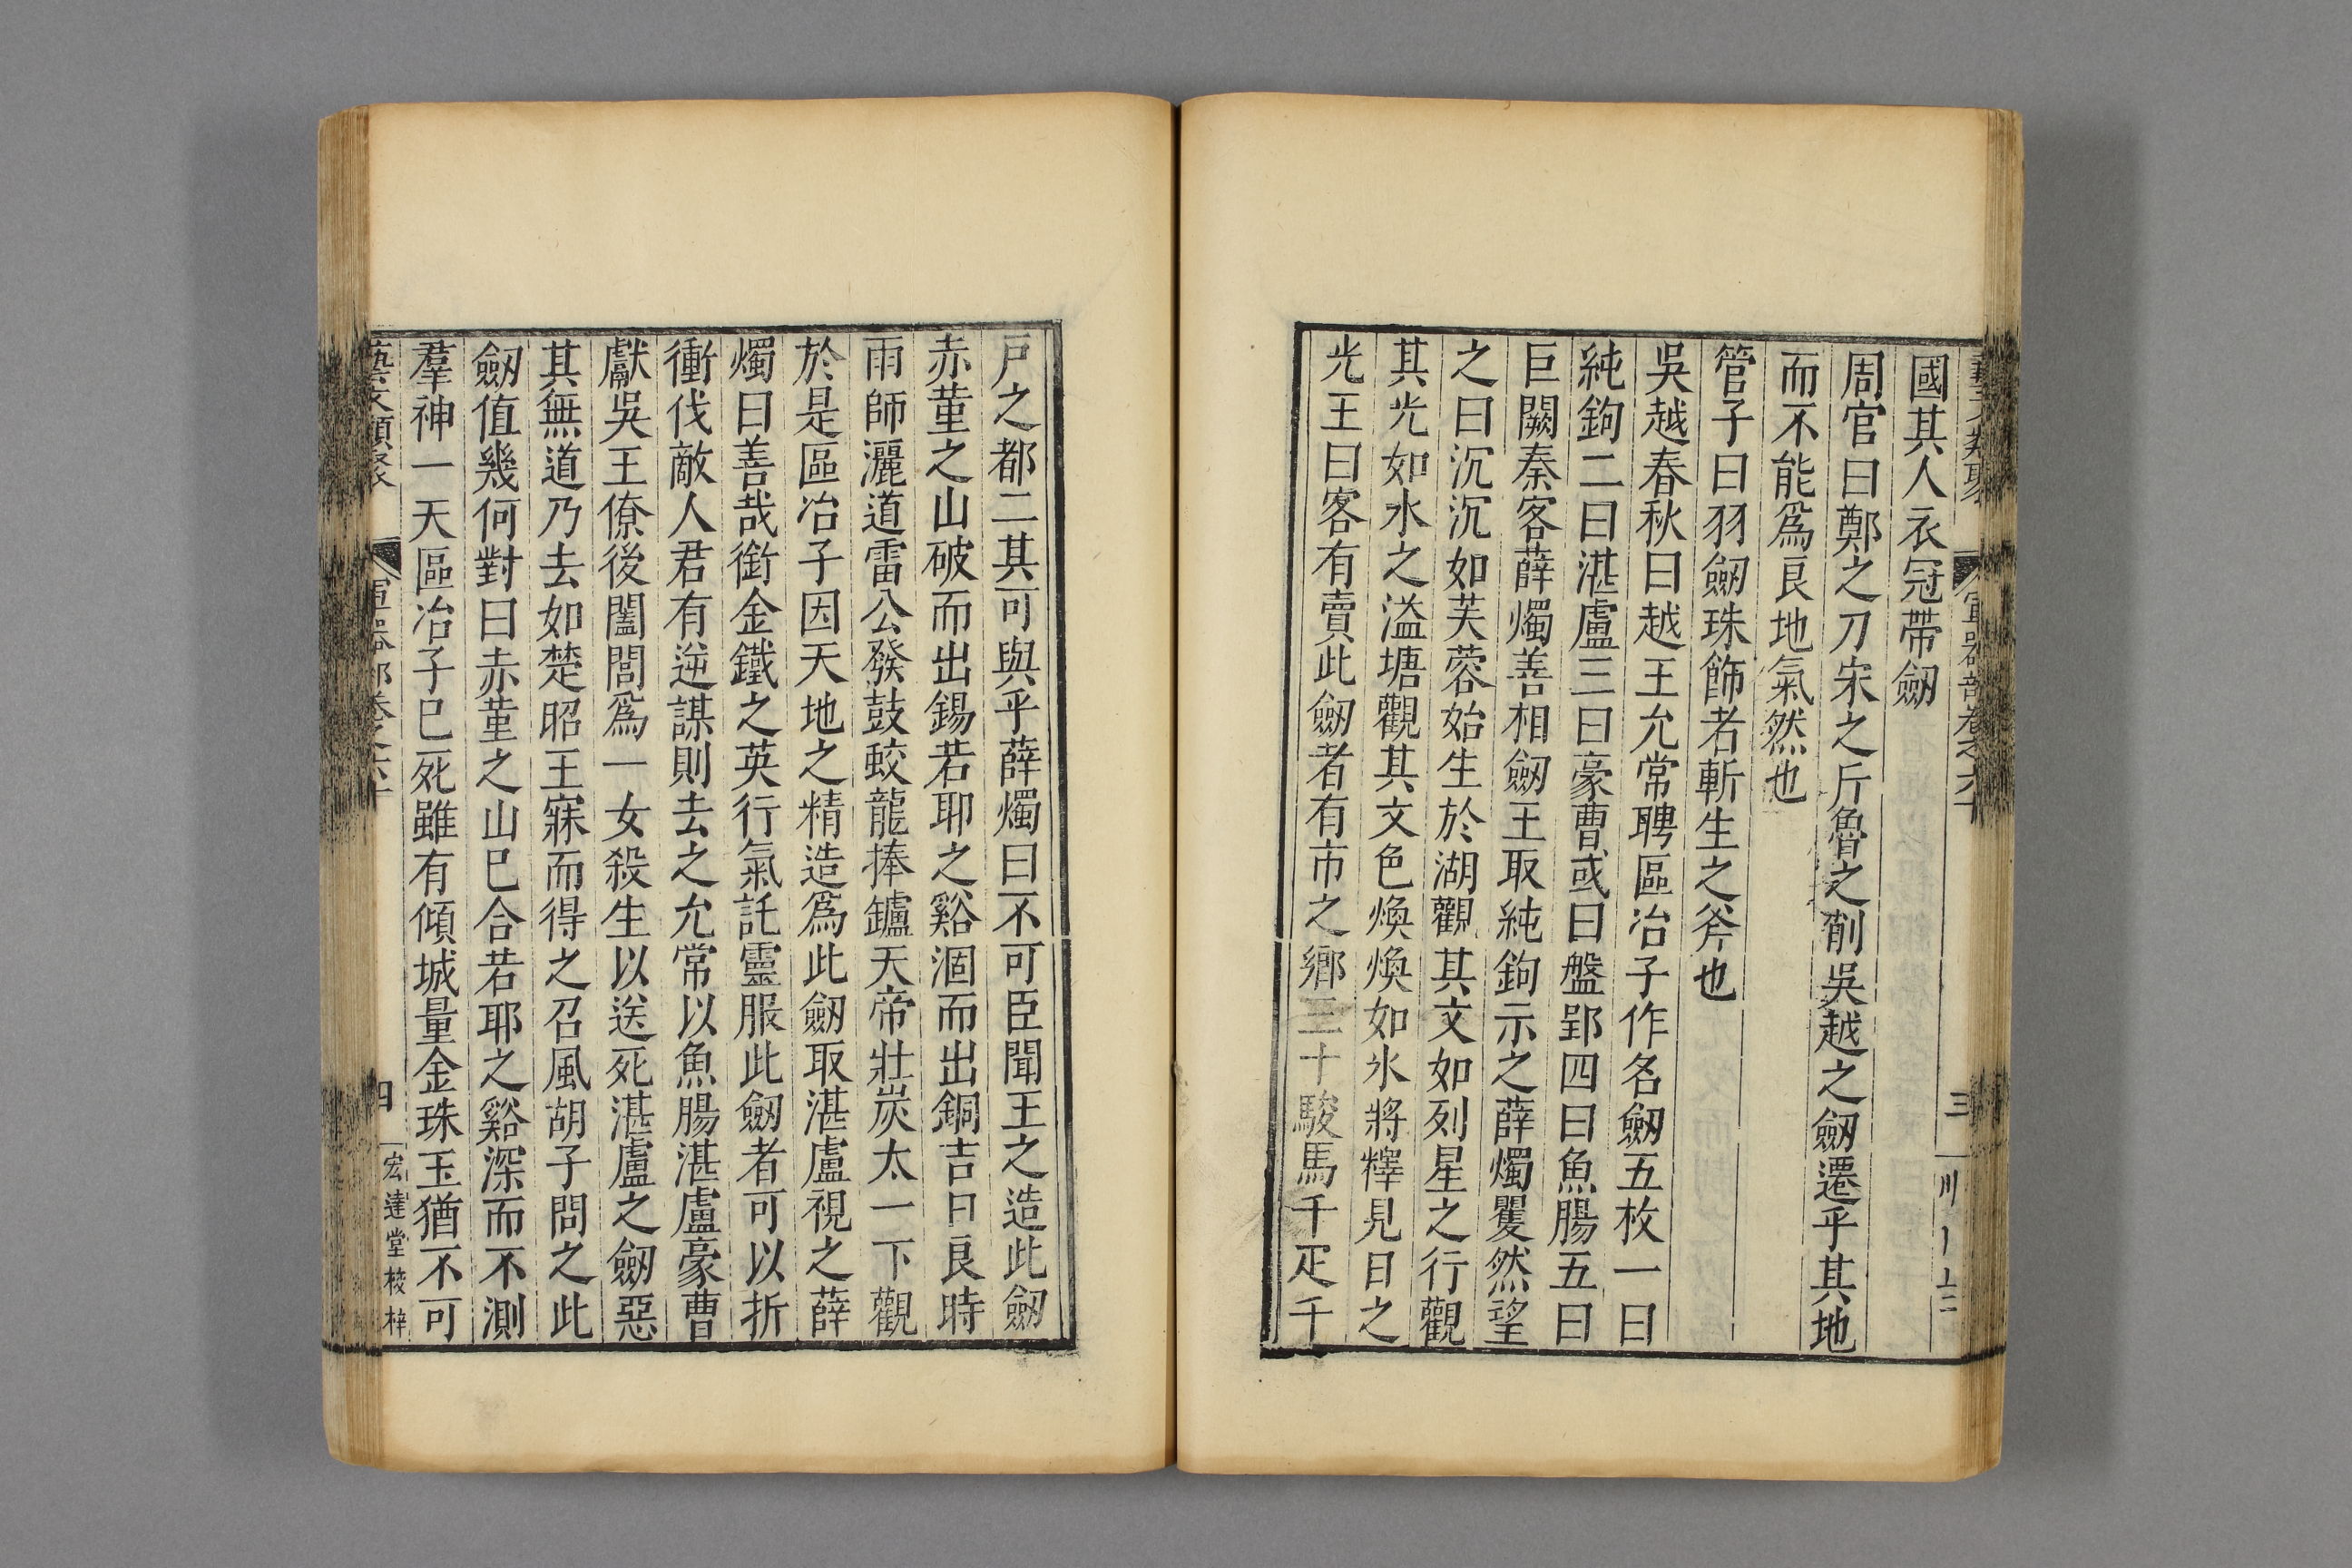 國其人衣冠帶劒
周官曰鄭之刀宋之斤魯之削吳越之劒遷乎其地
而不能爲良地氣然也
管子曰羽劒珠飾者斬生之斧也
吳越春秋曰越王允常聘區冶子作名劒五枚一曰
純鉤二曰湛盧三曰豪曹或曰盤郢四曰魚腸五曰
巨闕秦客薛燭善相劒王取純鉤示之薛燭矍然望
之曰沉沉如芙蓉始生於湖觀其文如列星之行觀
其光如水之溢塘觀其文色煥煥如氷將釋見日之
光王曰客有賣此劒者有市之鄉三十駿馬千疋千
戸之都二其可與乎薛燭曰不可臣聞王之造此劒
赤菫之山破而出錫若耶之谿涸而出銅吉日良時
雨師灑道雷公發鼓蛟龍捧鑪天帝壯炭太一下觀
於是區冶子因天地之精造爲此劒取湛盧視之薛
燭曰善哉銜金鐵之英行氣託靈服此劒者可以折
衝伐敵人君有逆謀則去之允常以魚腸湛盧豪曹
獻吳王僚後闔閭爲一女殺生以送死湛盧之劒惡
其無道乃去如楚昭王寐而得之召風胡子問之此
劒值幾何對曰赤菫之山巳合若耶之谿深而不測
羣神一天區冶子巳死雖有傾城量金珠玉猶不可
藝文類聚 軍器部卷之六十 四 宏達堂校梓